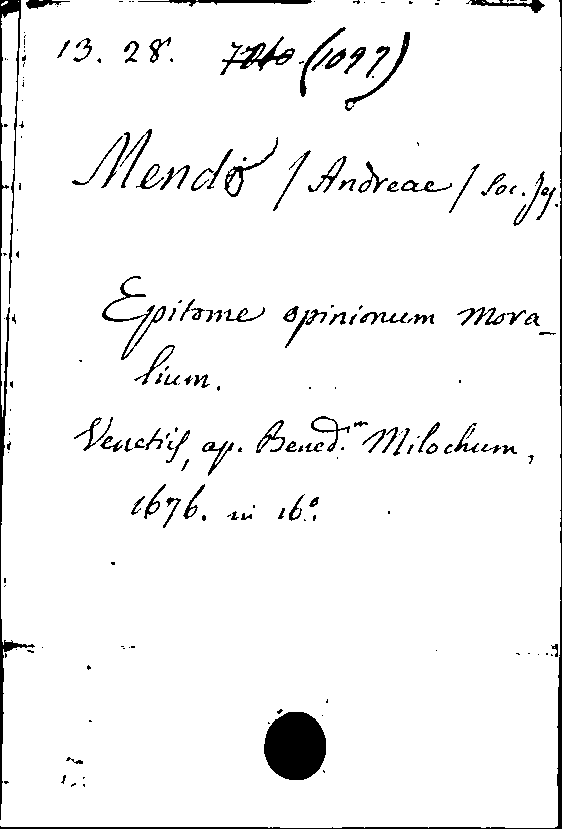 13. 28. (1097)
Mendo / Andreae / Soc. Jes.
Epitome opinionum mora_
lium.
Venetiis, ap. Bened.m Milochum,
1676. in 16°.